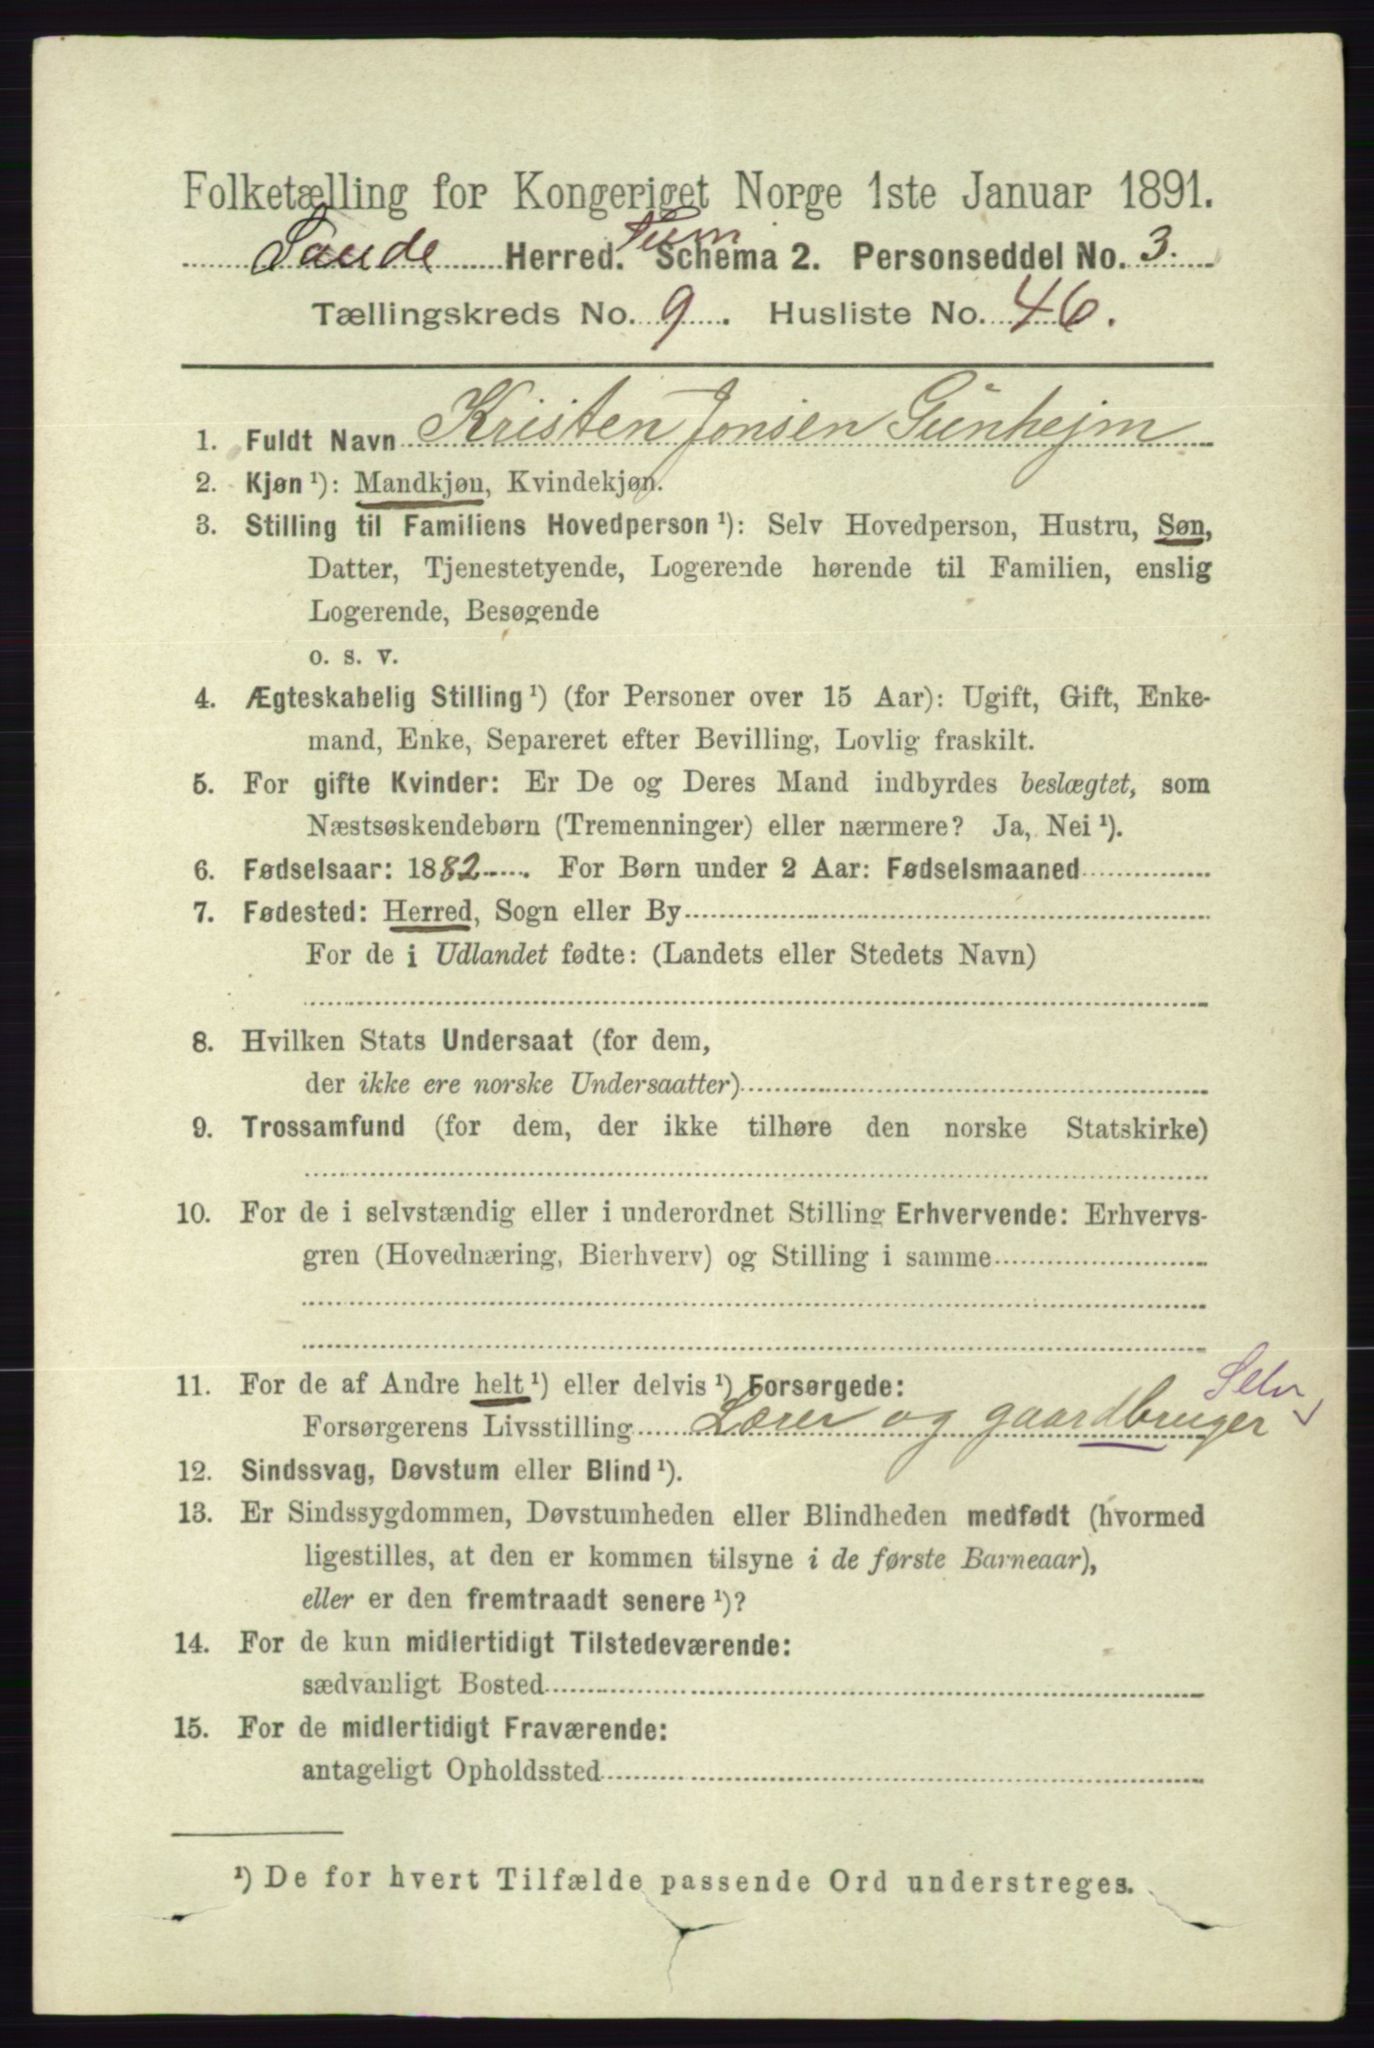 Folketælling for Kongeriget Norge 1ste Januar 1891.
Saude Herred. Schema 2. Personseddel No. 3.
Tællingskreds No. 9. Husliste No. 46.
1. Fuldt Navn Kristen Jonsen Gunhejm
2. Kjøn ¹): Mandkjøn, Kvindekjøn.
3. Stilling til Familiens Hovedperson ¹): Selv Hovedperson, Hustru, Søn,
Datter, Tjenestetyende, Logerende hørende til Familien, enslig
Logerende, Besøgende
o. s. v.
4. Ægteskabelig Stilling ¹) (for Personer over 15 Aar): Ugift, Gift, Enke-
mand, Enke, Separeret efter Bevilling, Lovlig fraskilt.
5. For gifte Kvinder: Er De og Deres Mand indbyrdes beslægtet, som
Næstsøskendebørn (Tremenninger) eller nærmere? Ja, Nei ¹).
6. Fødselsaar: 1882. For Børn under 2 Aar: Fødselsmaaned
7. Fødested: Herred, Sogn eller By
For de i Udlandet fødte: (Landets eller Stedets Navn)
8. Hvilken Stats Undersaat (for dem,
der ikke ere norske Undersaatter)
9. Trossamfund (for dem, der ikke tilhøre den norske Statskirke)
10. For de i selvstændig eller i underordnet Stilling Erhvervende: Erhvervs-
gren (Hovednæring, Bierhverv) og Stilling i samme
11. For de af Andre helt ¹) eller delvis ¹) Forsørgede: Selv
Forsørgerens Livsstilling Lærer og gaardbruger
12. Sindssvag, Døvstum eller Blind ¹).
13. Er Sindssygdommen, Døvstumheden eller Blindheden medfødt (hvormed
ligestilles, at den er kommen tilsyne i de første Barneaar),
eller er den fremtraadt senere ¹)?
14. For de kun midlertidigt Tilstedeværende:
sædvanligt Bosted
15. For de midlertidigt Fraværende:
antageligt Opholdssted
¹) De for hvert Tilfælde passende Ord understreges.